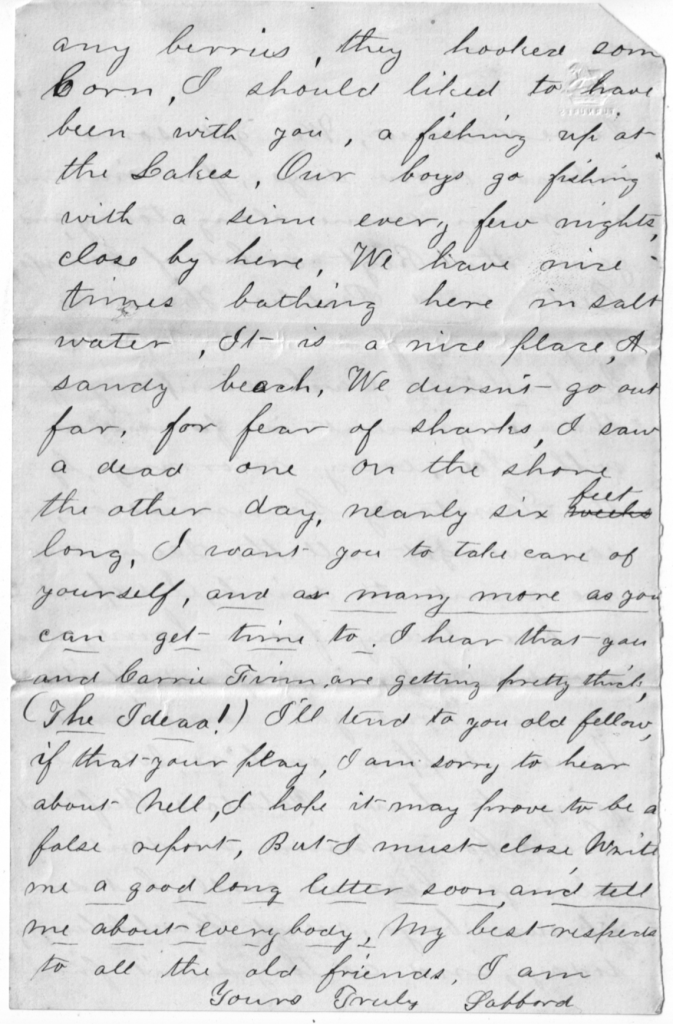 any berries, they hooked som
Corn, I should liked to have
been with you, a fishing up at
the Lakes, Our boys go fishing
with a seine every few nights,
close by here, We have nice
times bathing here in salt
water, It is a nice place, A
sandy beach, We dursn't go out
far, for fear of sharks, I saw
a dead one on the shore
the other day, nearly six weeks feet
long, I want you to take care of
yourself, and as many more as you
can get time to. I hear that you
and Carrie Finn are getting pretty thick,
(The Ideaa!) I'll tend to you old fellow,
if that your play, I am sorry to hear
about Nell, I hope it may prove to be a
false report, But I must close, Write
me a good long letter soon, and tell
me about everybody, My best respects
to all the old friends, I am
Yours Truly